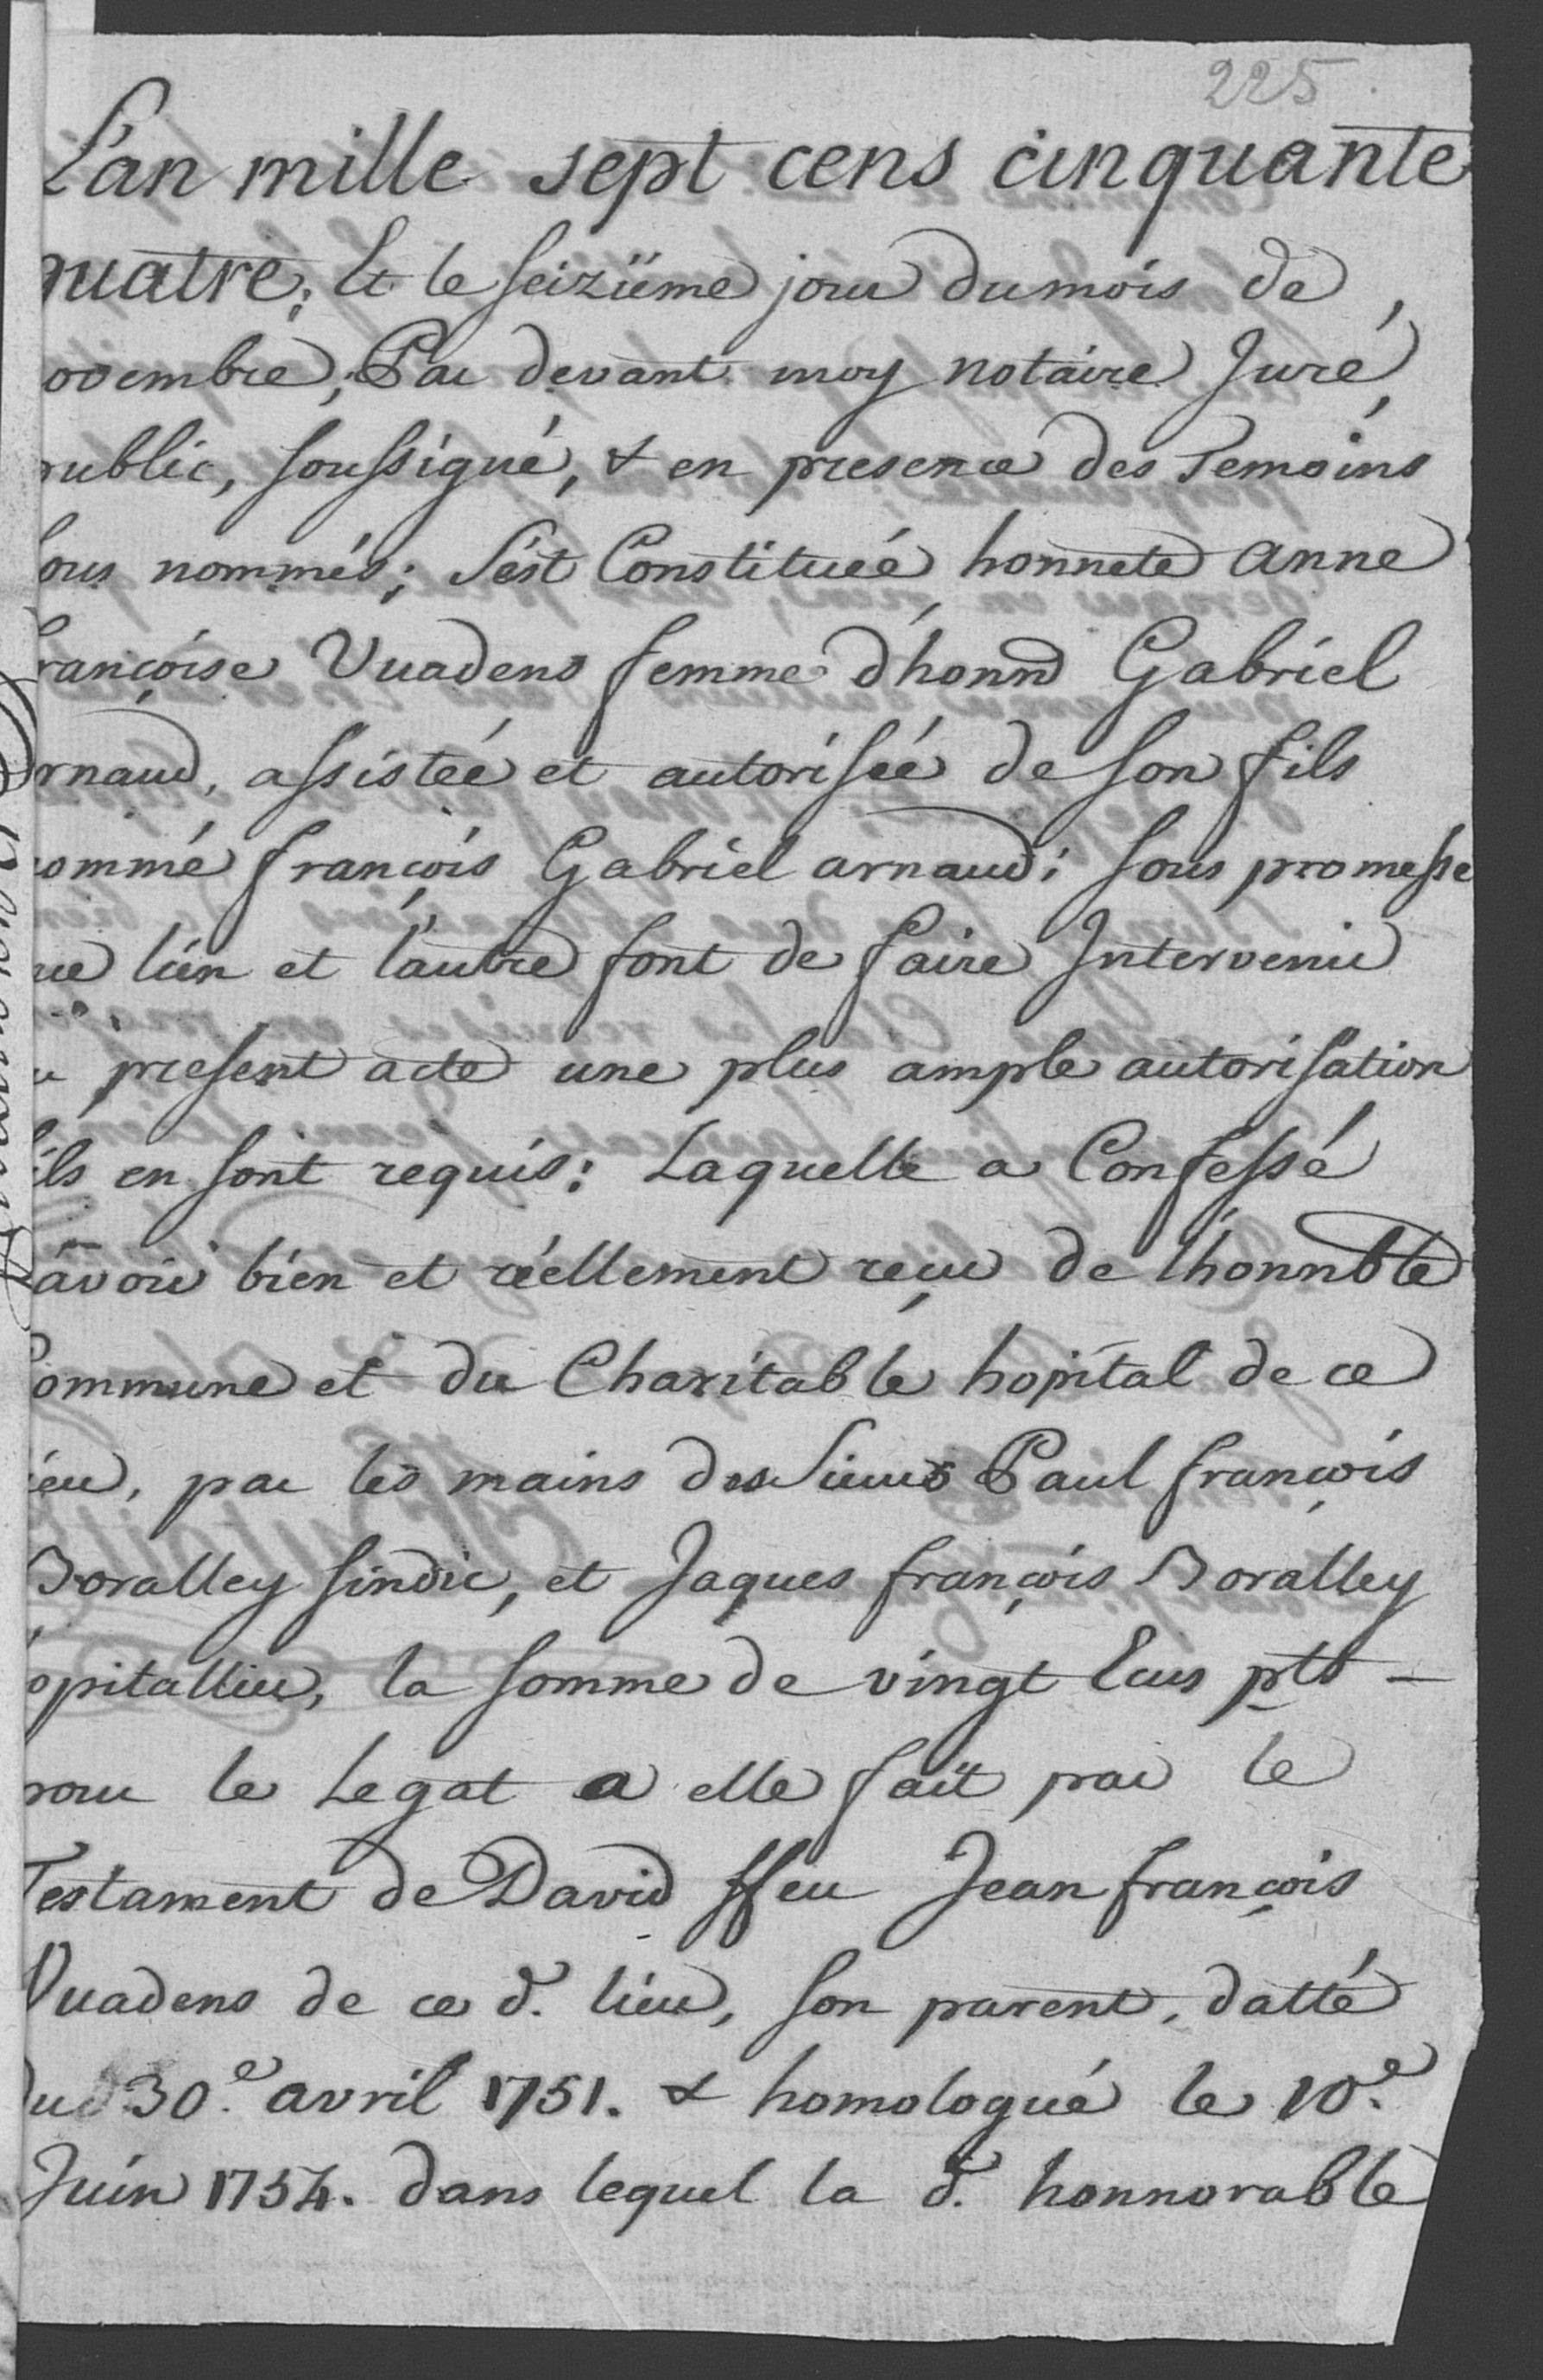 225.
L'an mille sept cens cinquante
quatre; Et le seiziême jour du mois de
ovembre; Par devant moy notaire Juré
public, soussigné, & en presence des Temoins
sous nommés; s'est Constituée honnete anne
françoise Vuadens femme d'honnd Gabriel
rnaud, assistée et autorisée de son fils
nommé françois Gabriel arnaud; sous promesse
ue l'un et l'autre font de faire Intervenir
u present acte une plus ample autorisation
s'ils en sont requis: Laquelle a Confessé
avoir bien et réellement reçu de l'honnble
Commune et du Charitable hopital de ce
ieu, par les mains des Sieurs Paul françois
Boralley sindic, et Jaques françois Boralley
opitallier, la somme de vingt Ecus pts -
pour le Legat a elle fait par le
Testament de David ffeu Jean françois
Vuadens de ce d. lieu, son parent, datté
du 30.e avril 1751. & homologué le 10.e
Juin 1754. dans lequel la d. honnorable